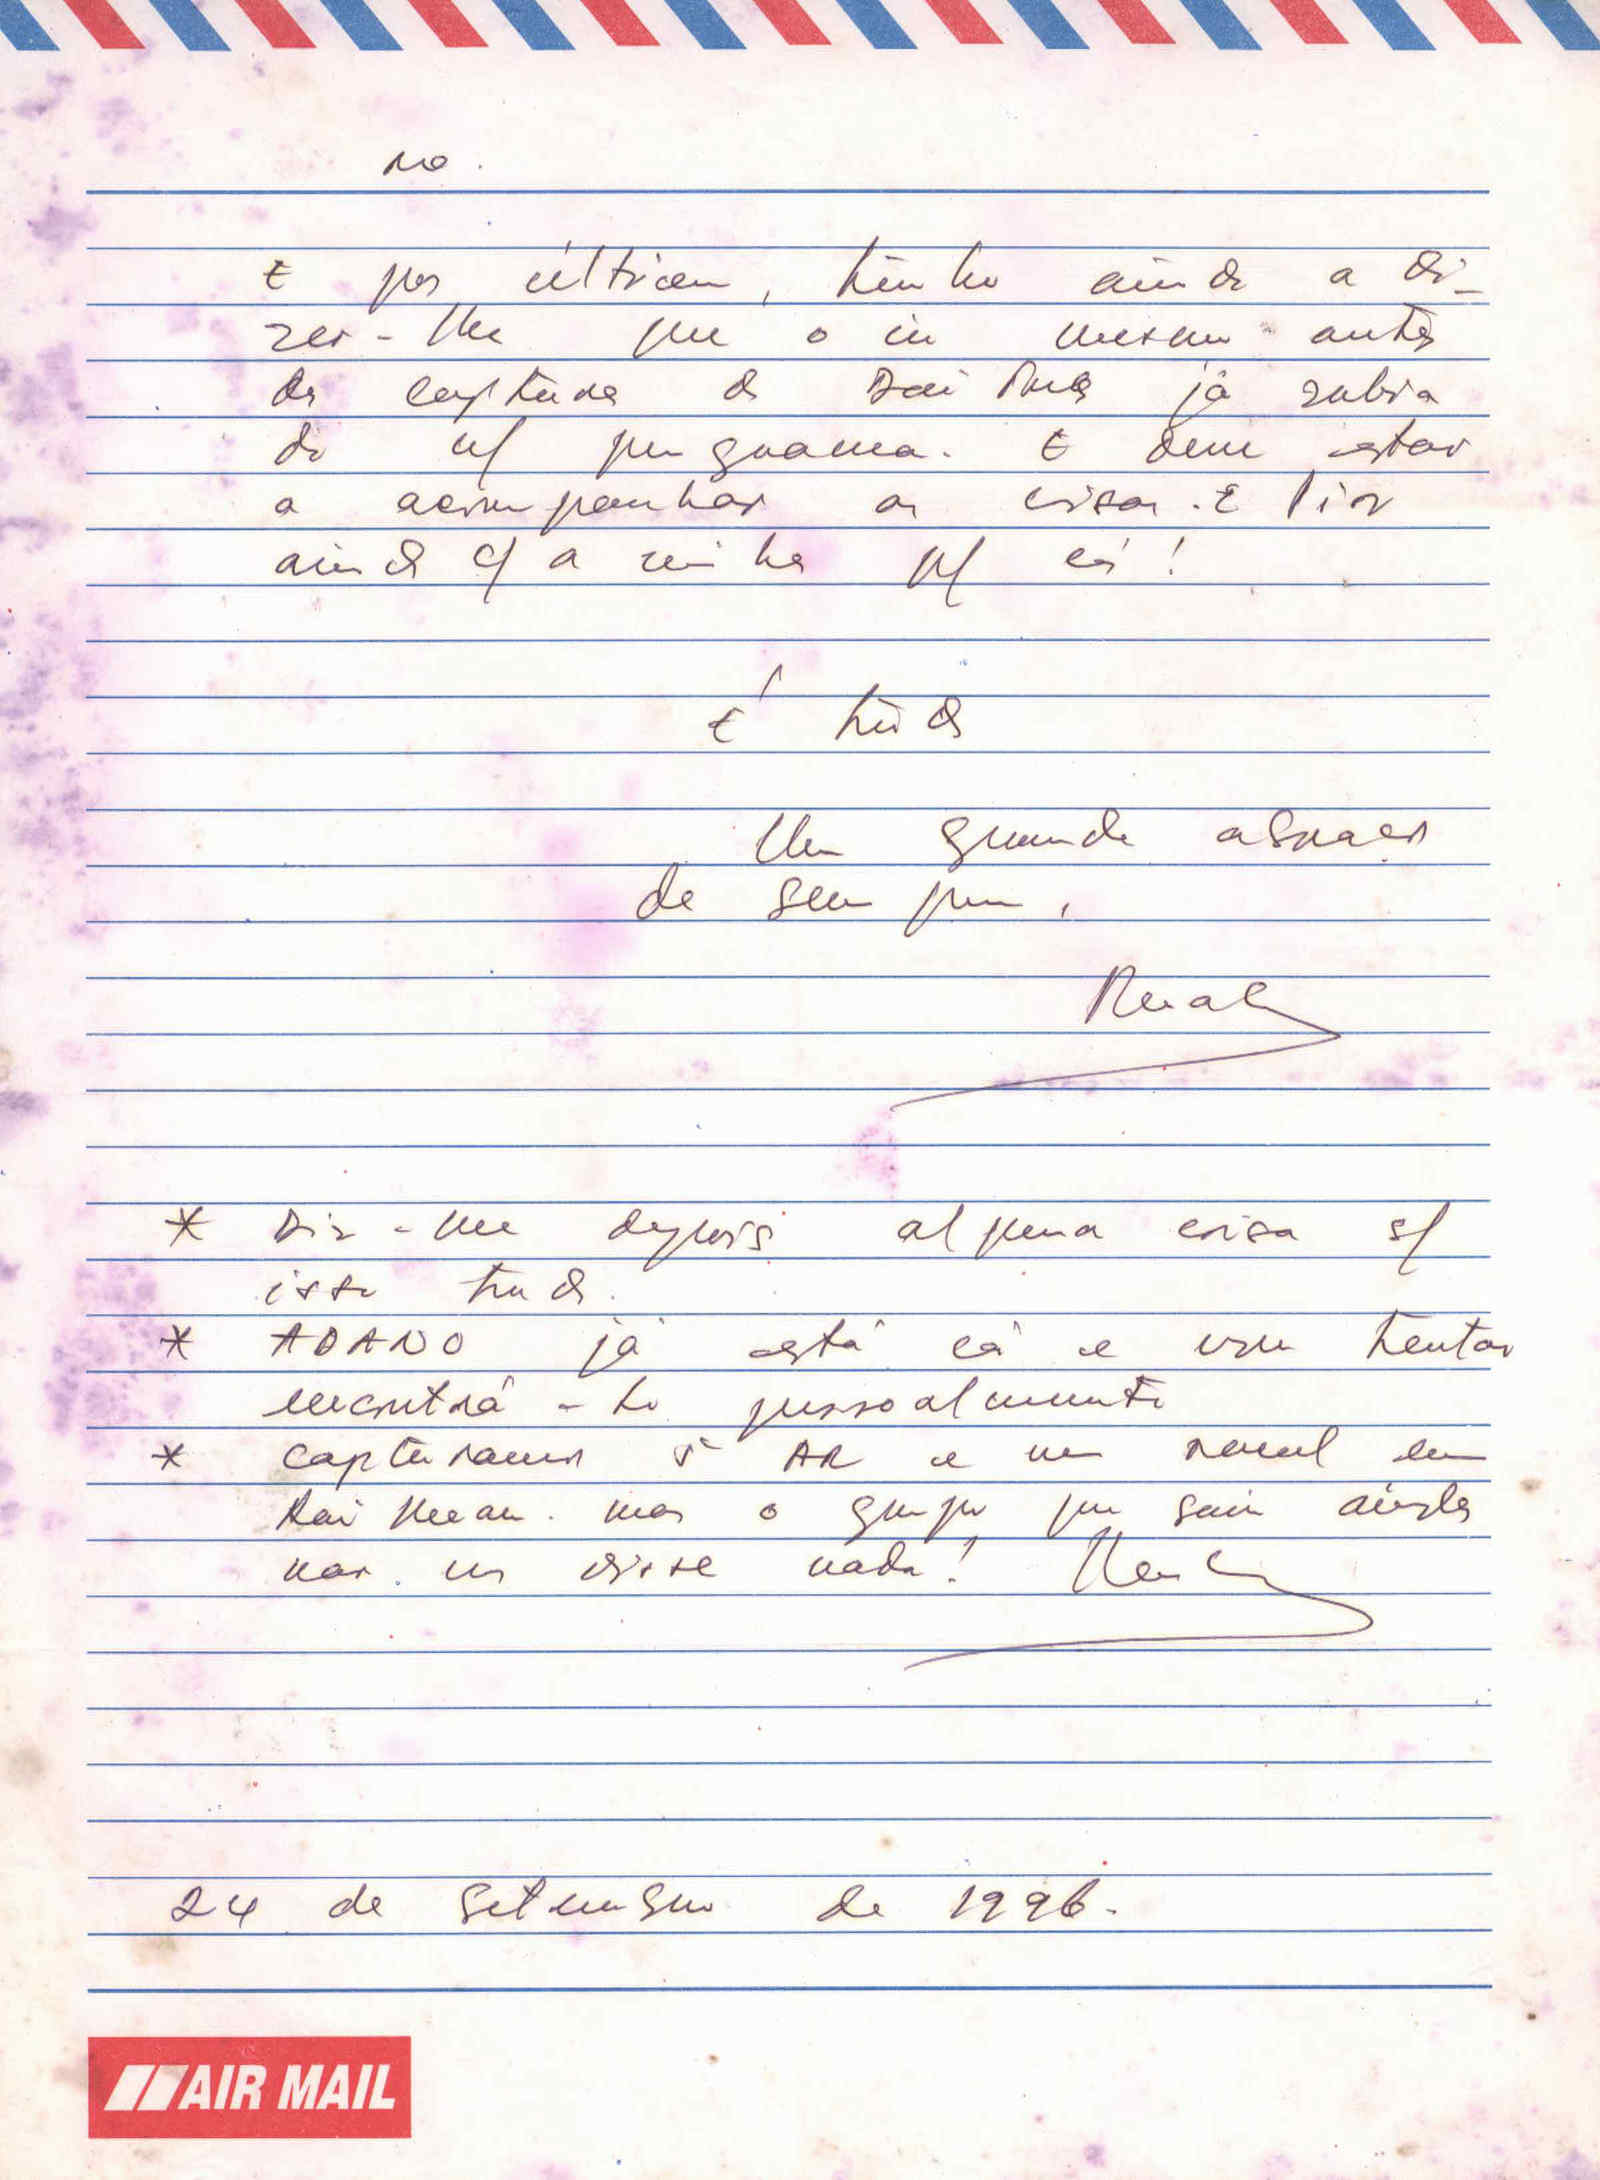 no.
E por último, tenho ainda a di-
zer-lhe que o in mesmo antes
da captura de já subia
do n/ programa. E deve estar
a acompanhar as coisas. E pior
ainda c/ a vinda p/ cá!
É tudo
Um grande abraço
de sempre,
* Diz-me depois alguma coisa s/
isso tudo.
* ADANO já está cá e vou tentar
encontrá-lo pessoalmente
* Capturaram 5 AR e um em
mas o grupo que saiu ainda
não nos disse nada!
24 de Setembro de 1996.
AIR MAIL